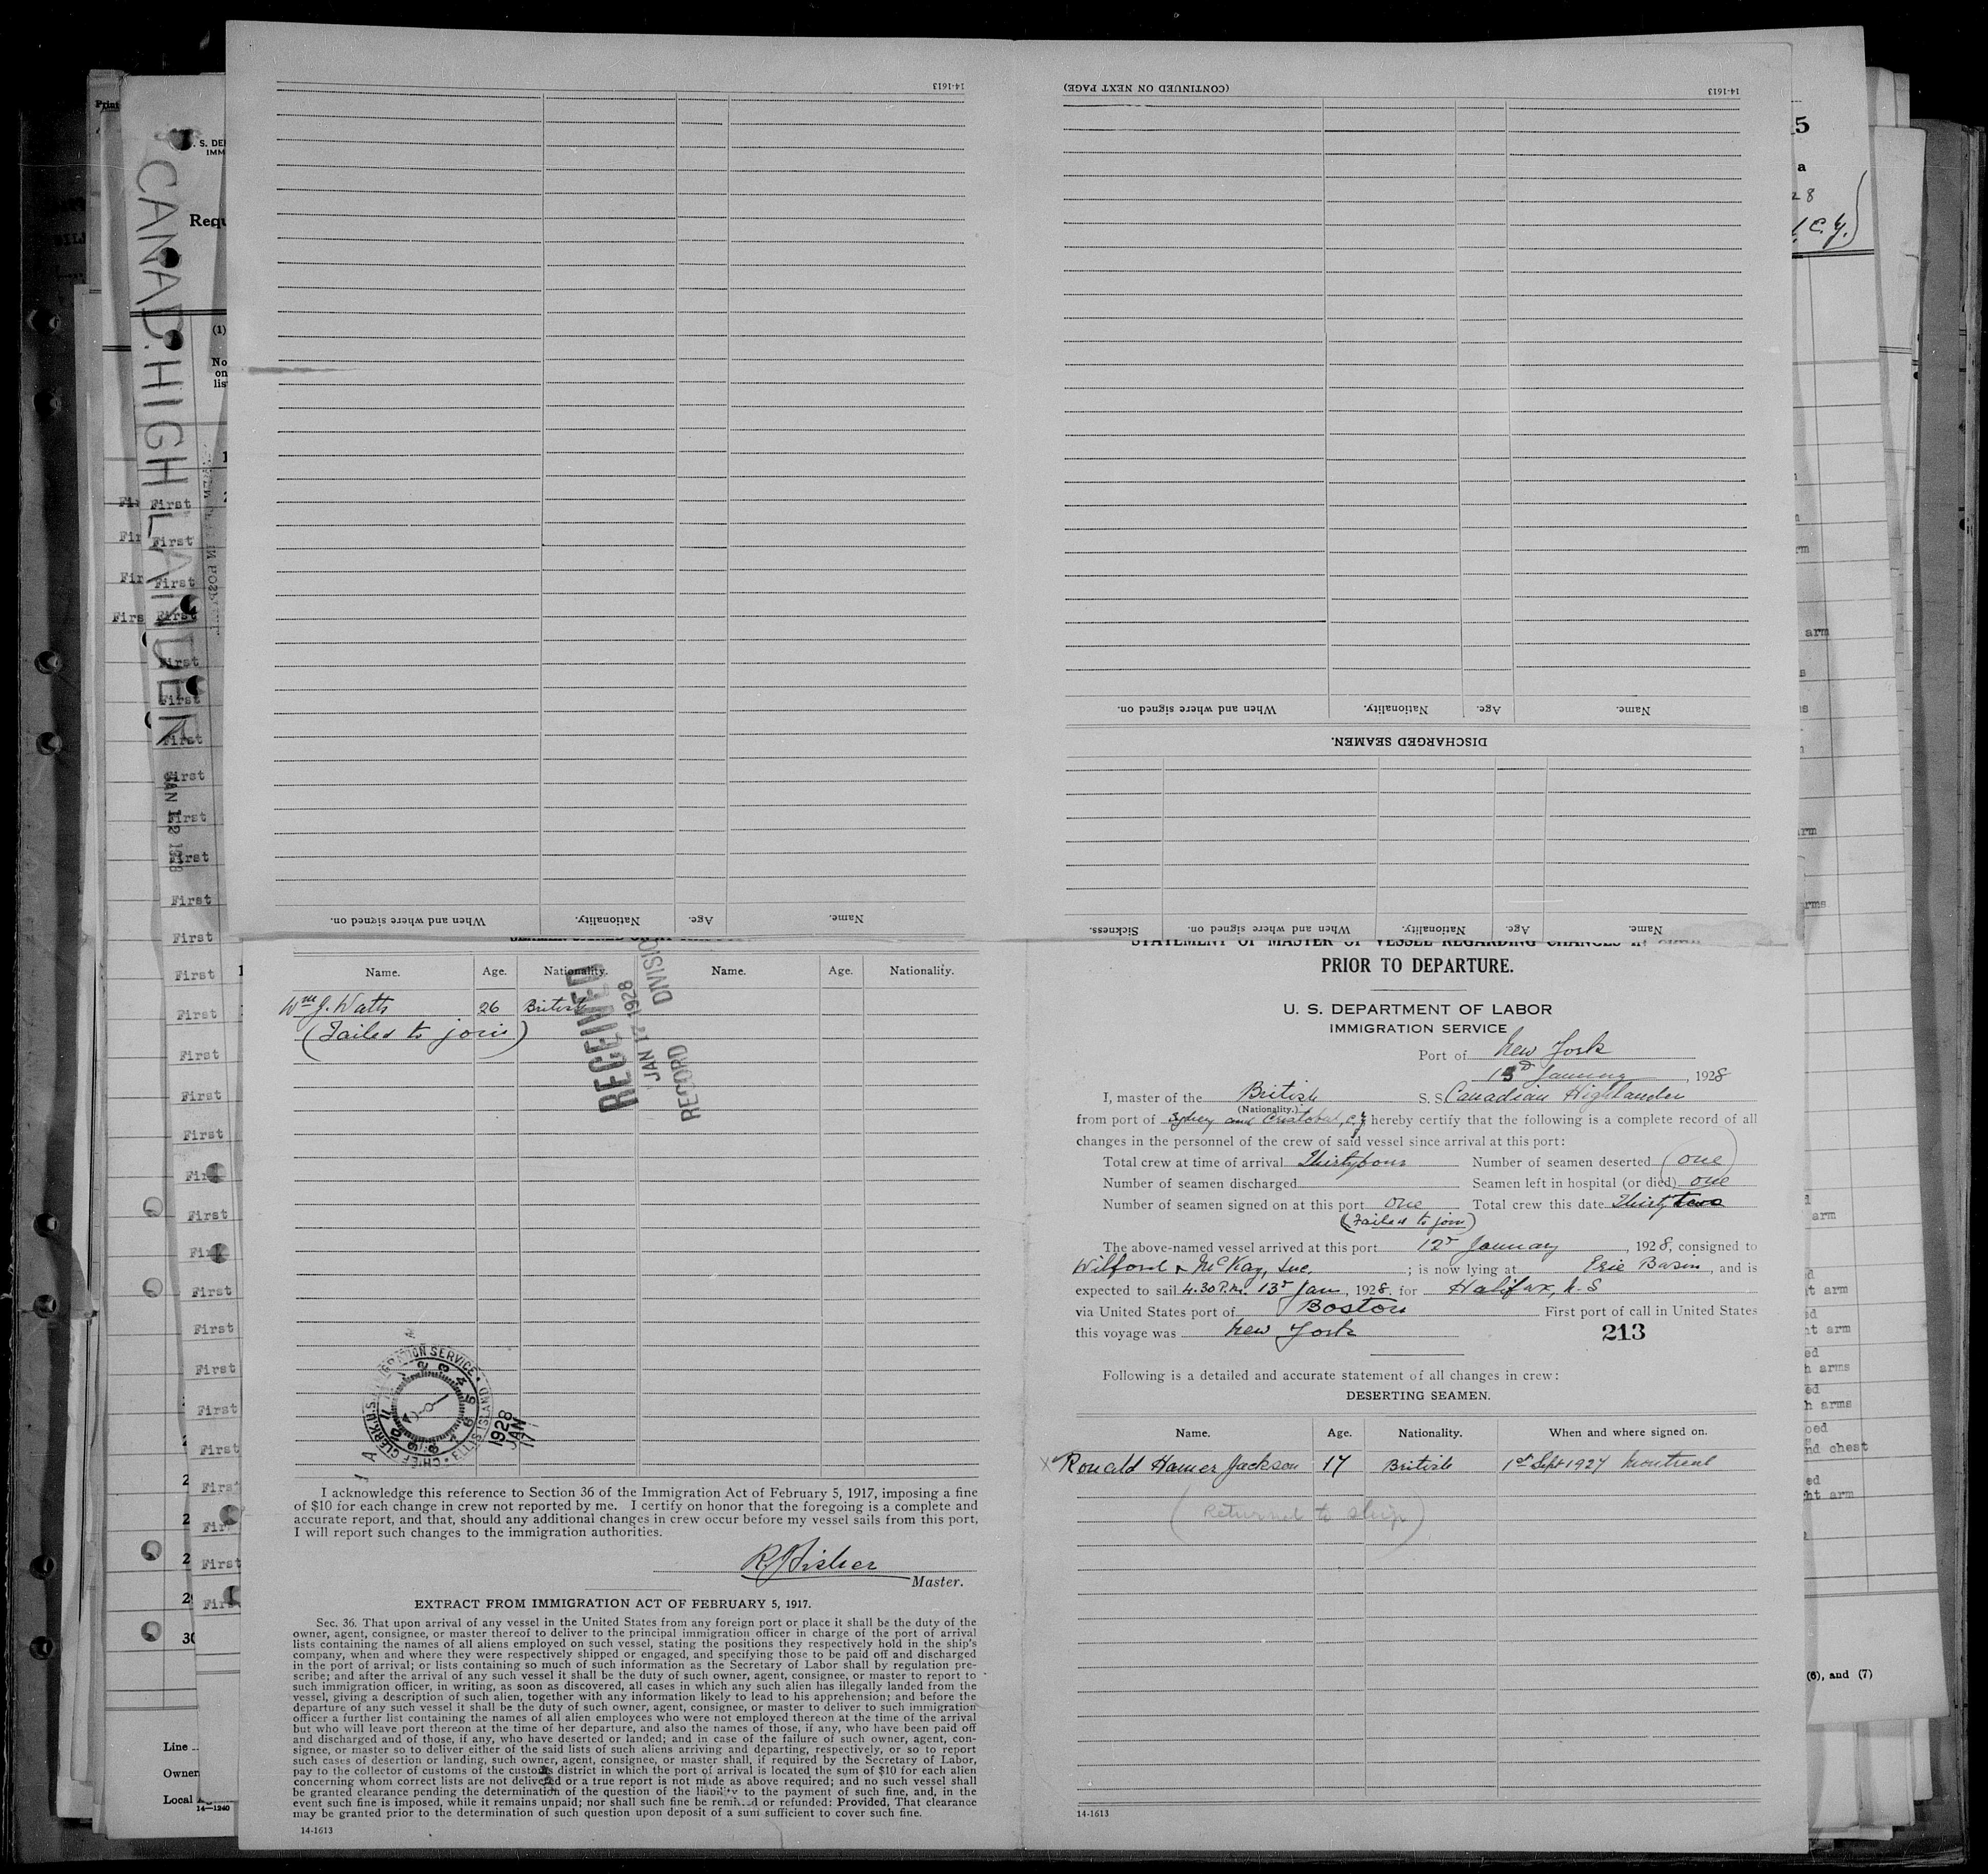 14-1613
When and where signed on.
Nationality.
Age.
Name.
(CONTINUED ON NEXT PAGE)
14-1613
When and where signed on.
Nationality.
Age.
Name.
DISCHARGED SEAMEN.
Sickness.
When and where signed on.
Nationality.
Age.
Name.
CANAD. HIGHLANDER
Name. Age. Nationality. Name. Age. Nationality.
Wm J. Watts 26 British
(Failed to join)
RECEIVED
JAN 17 1928
RECORD DIVISION
CHIEF CLERK, U.S. IMMIGRATION SERVICE • ELLIS ISLAND
1928
JAN
17
I acknowledge this reference to Section 36 of the Immigration Act of February 5, 1917, imposing a fine
of $10 for each change in crew not reported by me. I certify on honor that the foregoing is a complete and
accurate report, and that, should any additional changes in crew occur before my vessel sails from this port,
I will report such changes to the immigration authorities.
Master.
EXTRACT FROM IMMIGRATION ACT OF FEBRUARY 5, 1917.
Sec. 36. That upon arrival of any vessel in the United States from any foreign port or place it shall be the duty of the
owner, agent, consignee, or master thereof to deliver to the principal immigration officer in charge of the port of arrival
lists containing the names of all aliens employed on such vessel, stating the positions they respectively hold in the ship's
company, when and where they were respectively shipped or engaged, and specifying those to be paid off and discharged
in the port of arrival; or lists containing so much of such information as the Secretary of Labor shall by regulation pre-
scribe; and after the arrival of any such vessel it shall be the duty of such owner, agent, consignee, or master to report to
such immigration officer, in writing, as soon as discovered, all cases in which any such alien has illegally landed from the
vessel, giving a description of such alien, together with any information likely to lead to his apprehension; and before the
departure of any such vessel it shall be the duty of such owner, agent, consignee, or master to deliver to such immigration
officer a further list containing the names of all alien employees who were not employed thereon at the time of the arrival
but who will leave port thereon at the time of her departure, and also the names of those, if any, who have been paid off
and discharged and of those, if any, who have deserted or landed; and in case of the failure of such owner, agent, con-
signee, or master so to deliver either of the said lists of such aliens arriving and departing, respectively, or so to report
such cases of desertion or landing, such owner, agent, consignee, or master shall, if required by the Secretary of Labor,
pay to the collector of customs of the customs district in which the port of arrival is located the sum of $10 for each alien
concerning whom correct lists are not delivered or a true report is not made as above required; and no such vessel shall
be granted clearance pending the determination of the question of the liability to the payment of such fine, and, in the
event such fine is imposed, while it remains unpaid; nor shall such fine be remitted or refunded: Provided, That clearance
may be granted prior to the determination of such question upon deposit of a sum sufficient to cover such fine.
14-1613
STATEMENT OF MASTER OF VESSEL REGARDING CHANGES IN
PRIOR TO DEPARTURE.
U. S. DEPARTMENT OF LABOR
IMMIGRATION SERVICE
Port of New York
January, 1928
I, master of the British S. S. Canadian Highlander
(Nationality.)
from port of Sydney and Cristobal, C.Z. hereby certify that the following is a complete record of all
changes in the personnel of the crew of said vessel since arrival at this port:
Total crew at time of arrival Thirtyfour Number of seamen deserted (one)
Number of seamen discharged Seamen left in hospital (or died) one
Number of seamen signed on at this port one Total crew this date Thirty two
(Failed to join)
The above-named vessel arrived at this port 12th January, 1928, consigned to
Wilford & McKay, Inc. ; is now lying at Erie Basin, and is
expected to sail 4.30 P.M. 13th Jan, 1928. for Halifax, N.S
via United States port of Boston First port of call in United States
this voyage was New York
213
Following is a detailed and accurate statement of all changes in crew:
DESERTING SEAMEN.
Name. Age. Nationality. When and where signed on.
x Ronald Hamer Jackson 17 British 1st Sept 1927 Montreal
(Returned to ship)
14-1613
(6), and (7)
Line
Owner
Local
14—1240